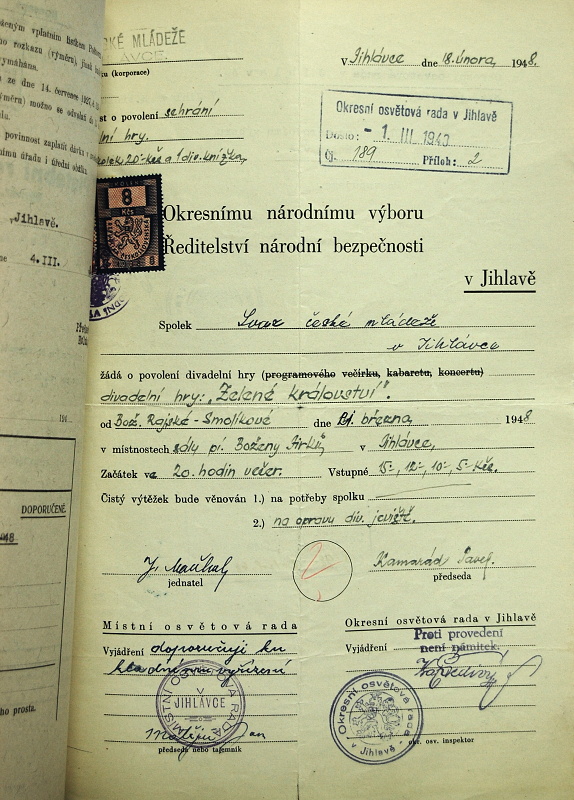 ženým vplatním lístkem
ho rozkazu (výměru), jinak
vymáhána.
ze dne 14. července 1927,
výměru) možno se odvolati do
povinnost zaplatit dávku v
nímu úřadu i úřední obálka.
Jihlavě.
4.III.
194
DOPORUČENĚ.
48
ho prosta.
KÉ MLÁDEŽE
VCE.
u (korporace)
V Jihlávce dne 18. února, 1948.
st o povolení sehrání
lní hry.
kolek: 20-Kčs a 1 div. knížka,
Okresní osvětová rada v Jihlavě
Došlo: - 1. III 194
Čj. 189 Příloh: 2
KOLEK
8
Kčs
ČESKOSLOVENSKÁ
8 8
Okresnímu národnímu výboru
Ředitelství národní bezpečnosti
v Jihlavě
Spolek Svaz české mládeže
v Jihlávce
žádá o povolení divadelní hry (programového večírku, kabaretu, koncertu)
divadelní hry: „Zelené království".
od Bož. Rajské-Smolíkové dne 21. března, 1948
v místnostech sály pí. Boženy v Jihlávce,
Začátek ve 20. hodin večer. Vstupné 15-, 12-, 10-, 5-Kčs.
Čistý výtěžek bude věnován 1.) na potřeby spolku
2.) na opravu div. jeviště.
J.
jednatel
Kamarád Pavel.
předseda
Místní osvětová rada
Vyjádření doporučuji ku
kladnému vyřízení
MÍSTNÍ OSVĚTOVÁ RADA
V
JIHLÁVCE
Jan
předseda nebo tajemník
Okresní osvětová rada v Jihlavě
Vyjádření
Proti provedení
není námitek.
Okresní osvětová rada
v Jihlavě
okr. osv. inspektor